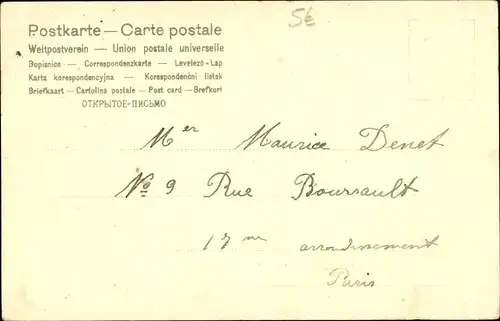 5€
Postkarte — Carte postale
Weltpostverein — Union postale universelle
Dopisnice — Correspondenzkarte — Levelező-Lap
Karta korespondencyjna — Korespondenční lístek
Briefkaart — Cartolina postale — Post card — Brefkort
ОТКРЫТОЕ-ПИСЬМО
Mer Maurice Denet
No 9 Rue Boursault
17me arrondissement
Paris